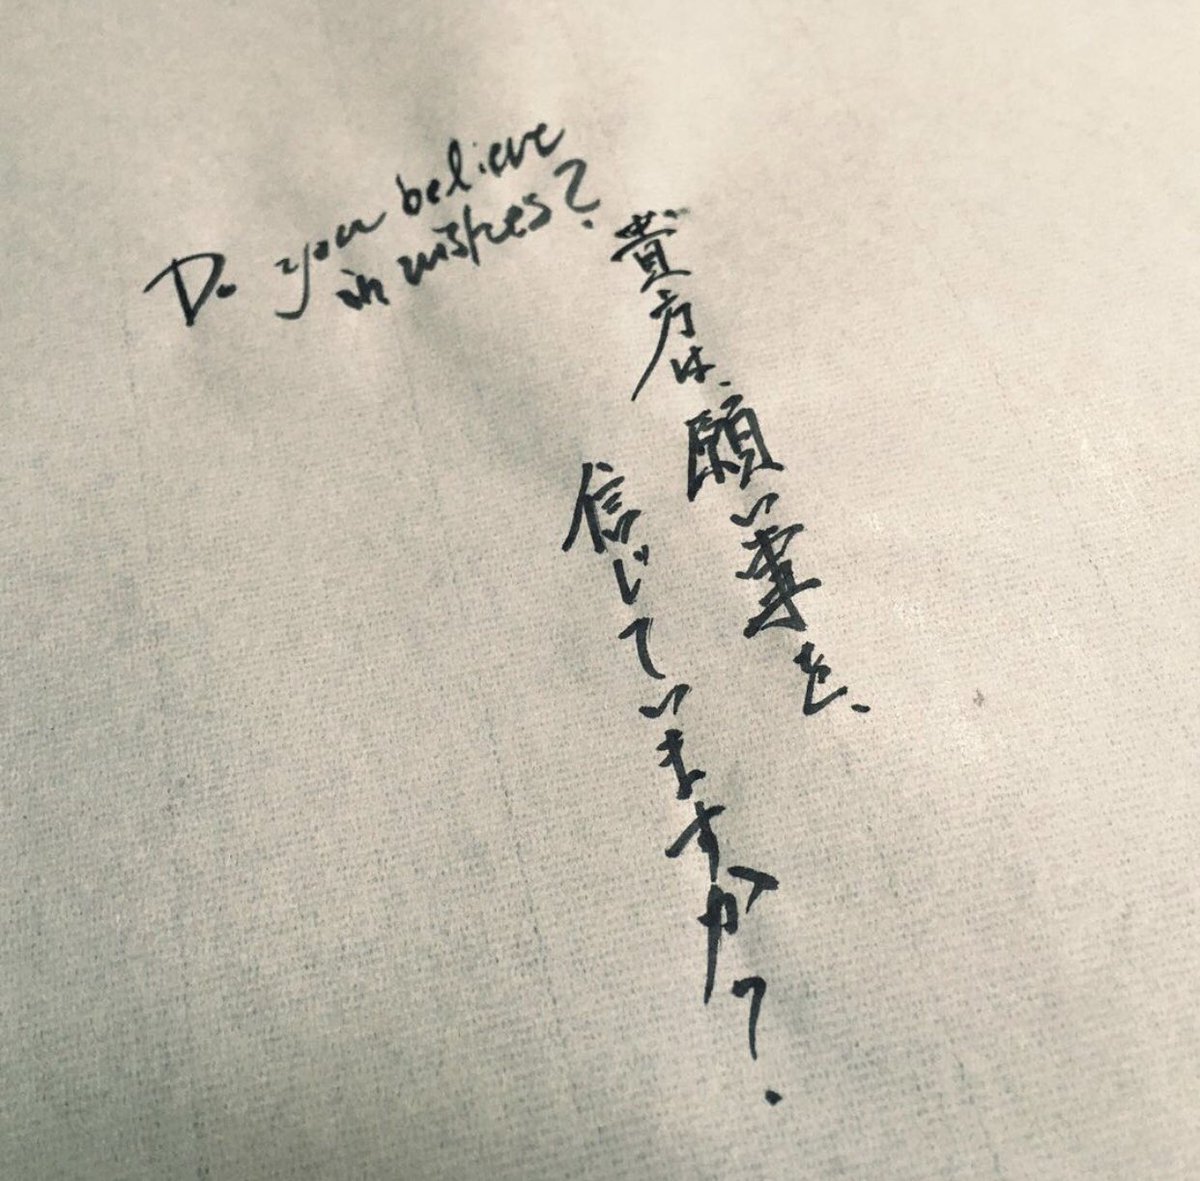 Do you believe
in wishes?
貴方は、願い事を、
信じていますか?